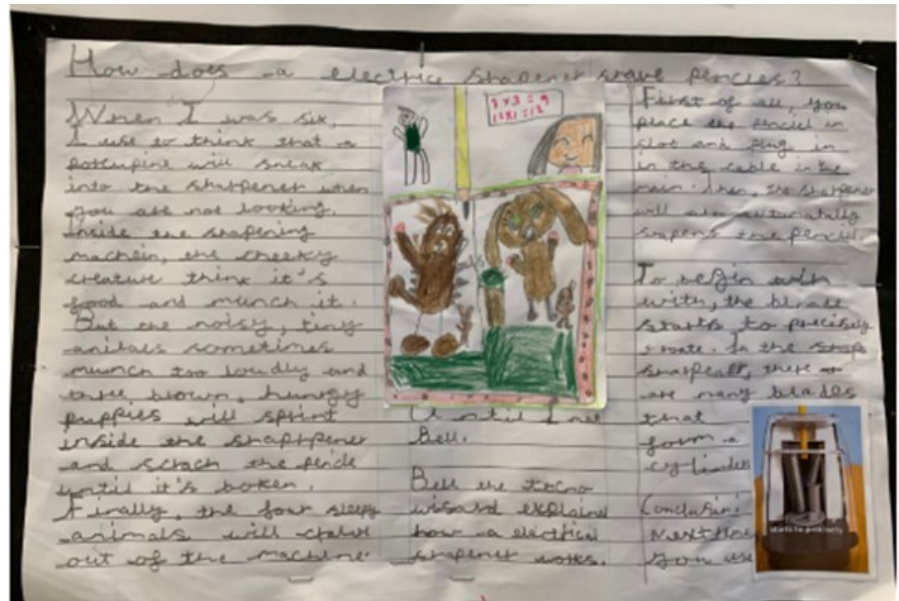 How does a electric shapener shave pencies?
When I was six,
I use to think that a
porcupine will sneak
into the sharpener when
you are not looking.
Inside the shapening
machein, the cheeky
creature think it's
food and munch it.
But the noisy, tiny
animals sometimes
munch too loudly and
three brown, hungry
puppies will sprint
inside the sharpener
and scrach the pencle
until it's boken.
Finally, the four sleepy
animals will
out of the machine.
3 x 3 = 9
Until I met
Bell.
Bell the
wissard explained
how a electrical
shapener works.
First of all, you
place the penciel in
slot and plug in
in the cable in the
main. Then, the sharpener
will automatically
the pencil.
To begin with
with, the blade
starts to precisely
rotate. In the
there
are many blades
that
form a
cylinder
Conclusion:
Next time
you use